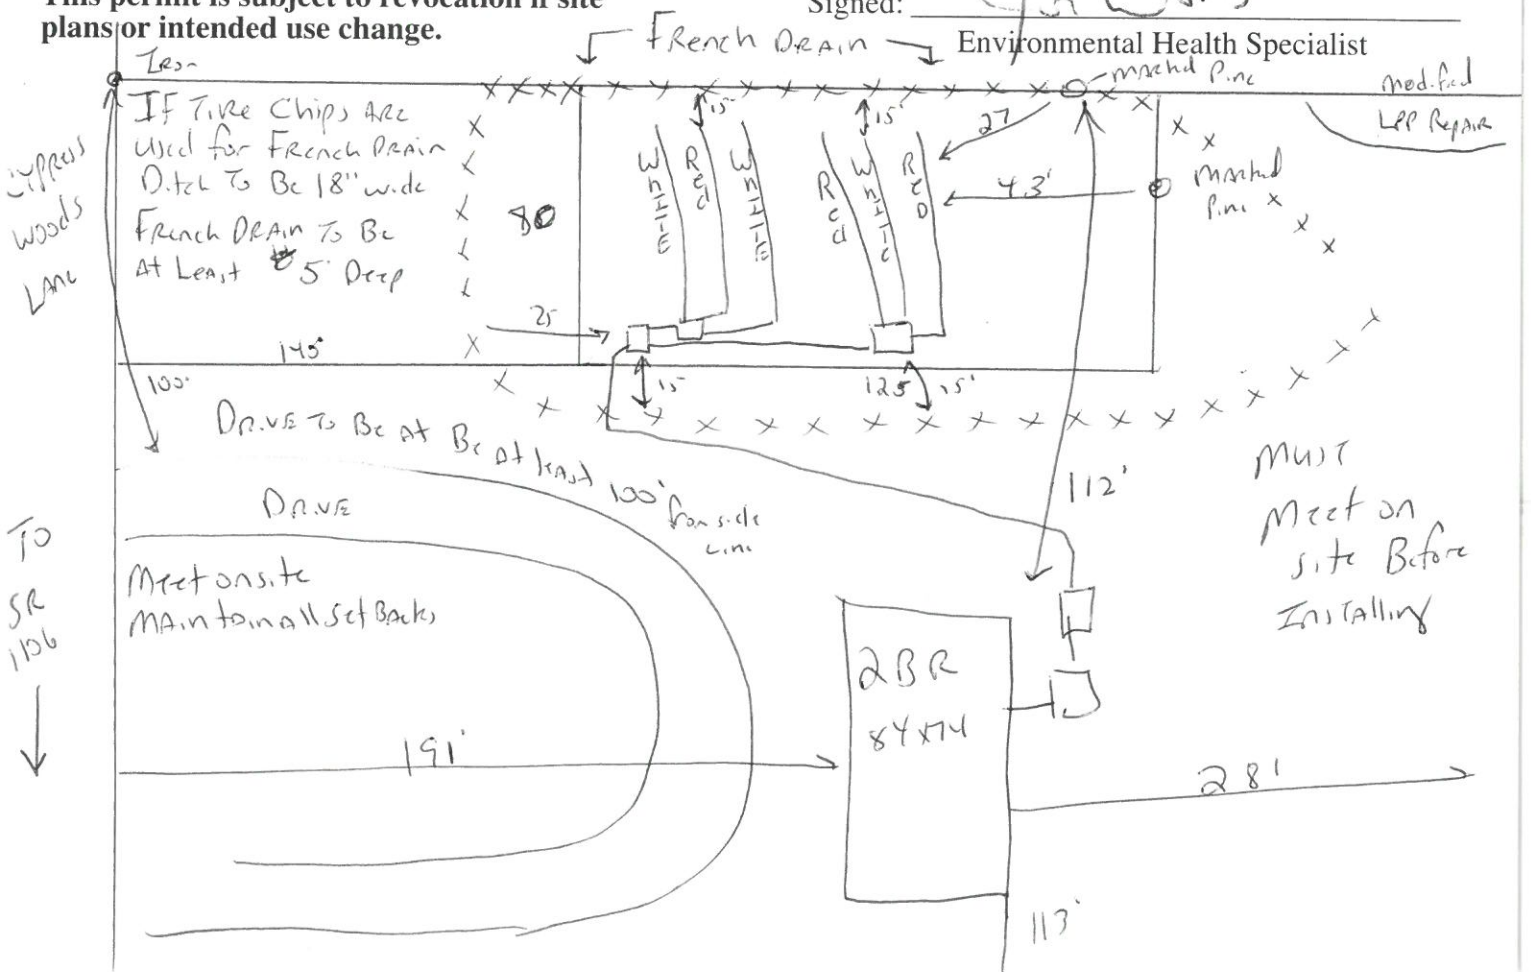 This permit is subject to revocation if site
plans or intended use change.
Signed:
Environmental Health Specialist
French DRAIN
Iron
Marked Pine
modified
LPP Repair
IF Tire Chips Are
Used for French Drain
Ditch To Be 18" wide
French DRAIN To Be
At Least 5' Deep
Cypress
Woods
Lane
80
15'
15'
27
43'
Marked
Pine
White
Red
White
Red
White
Red
25
145'
100'
15
125
15'
Drive To Be At Be At least 100' from side
Line
112'
Must
Meet on
site Before
Installing
DRIVE
To
SR
1106
Meet onsite
Maintain all setBacks
2BR
84x74
191'
281
113'